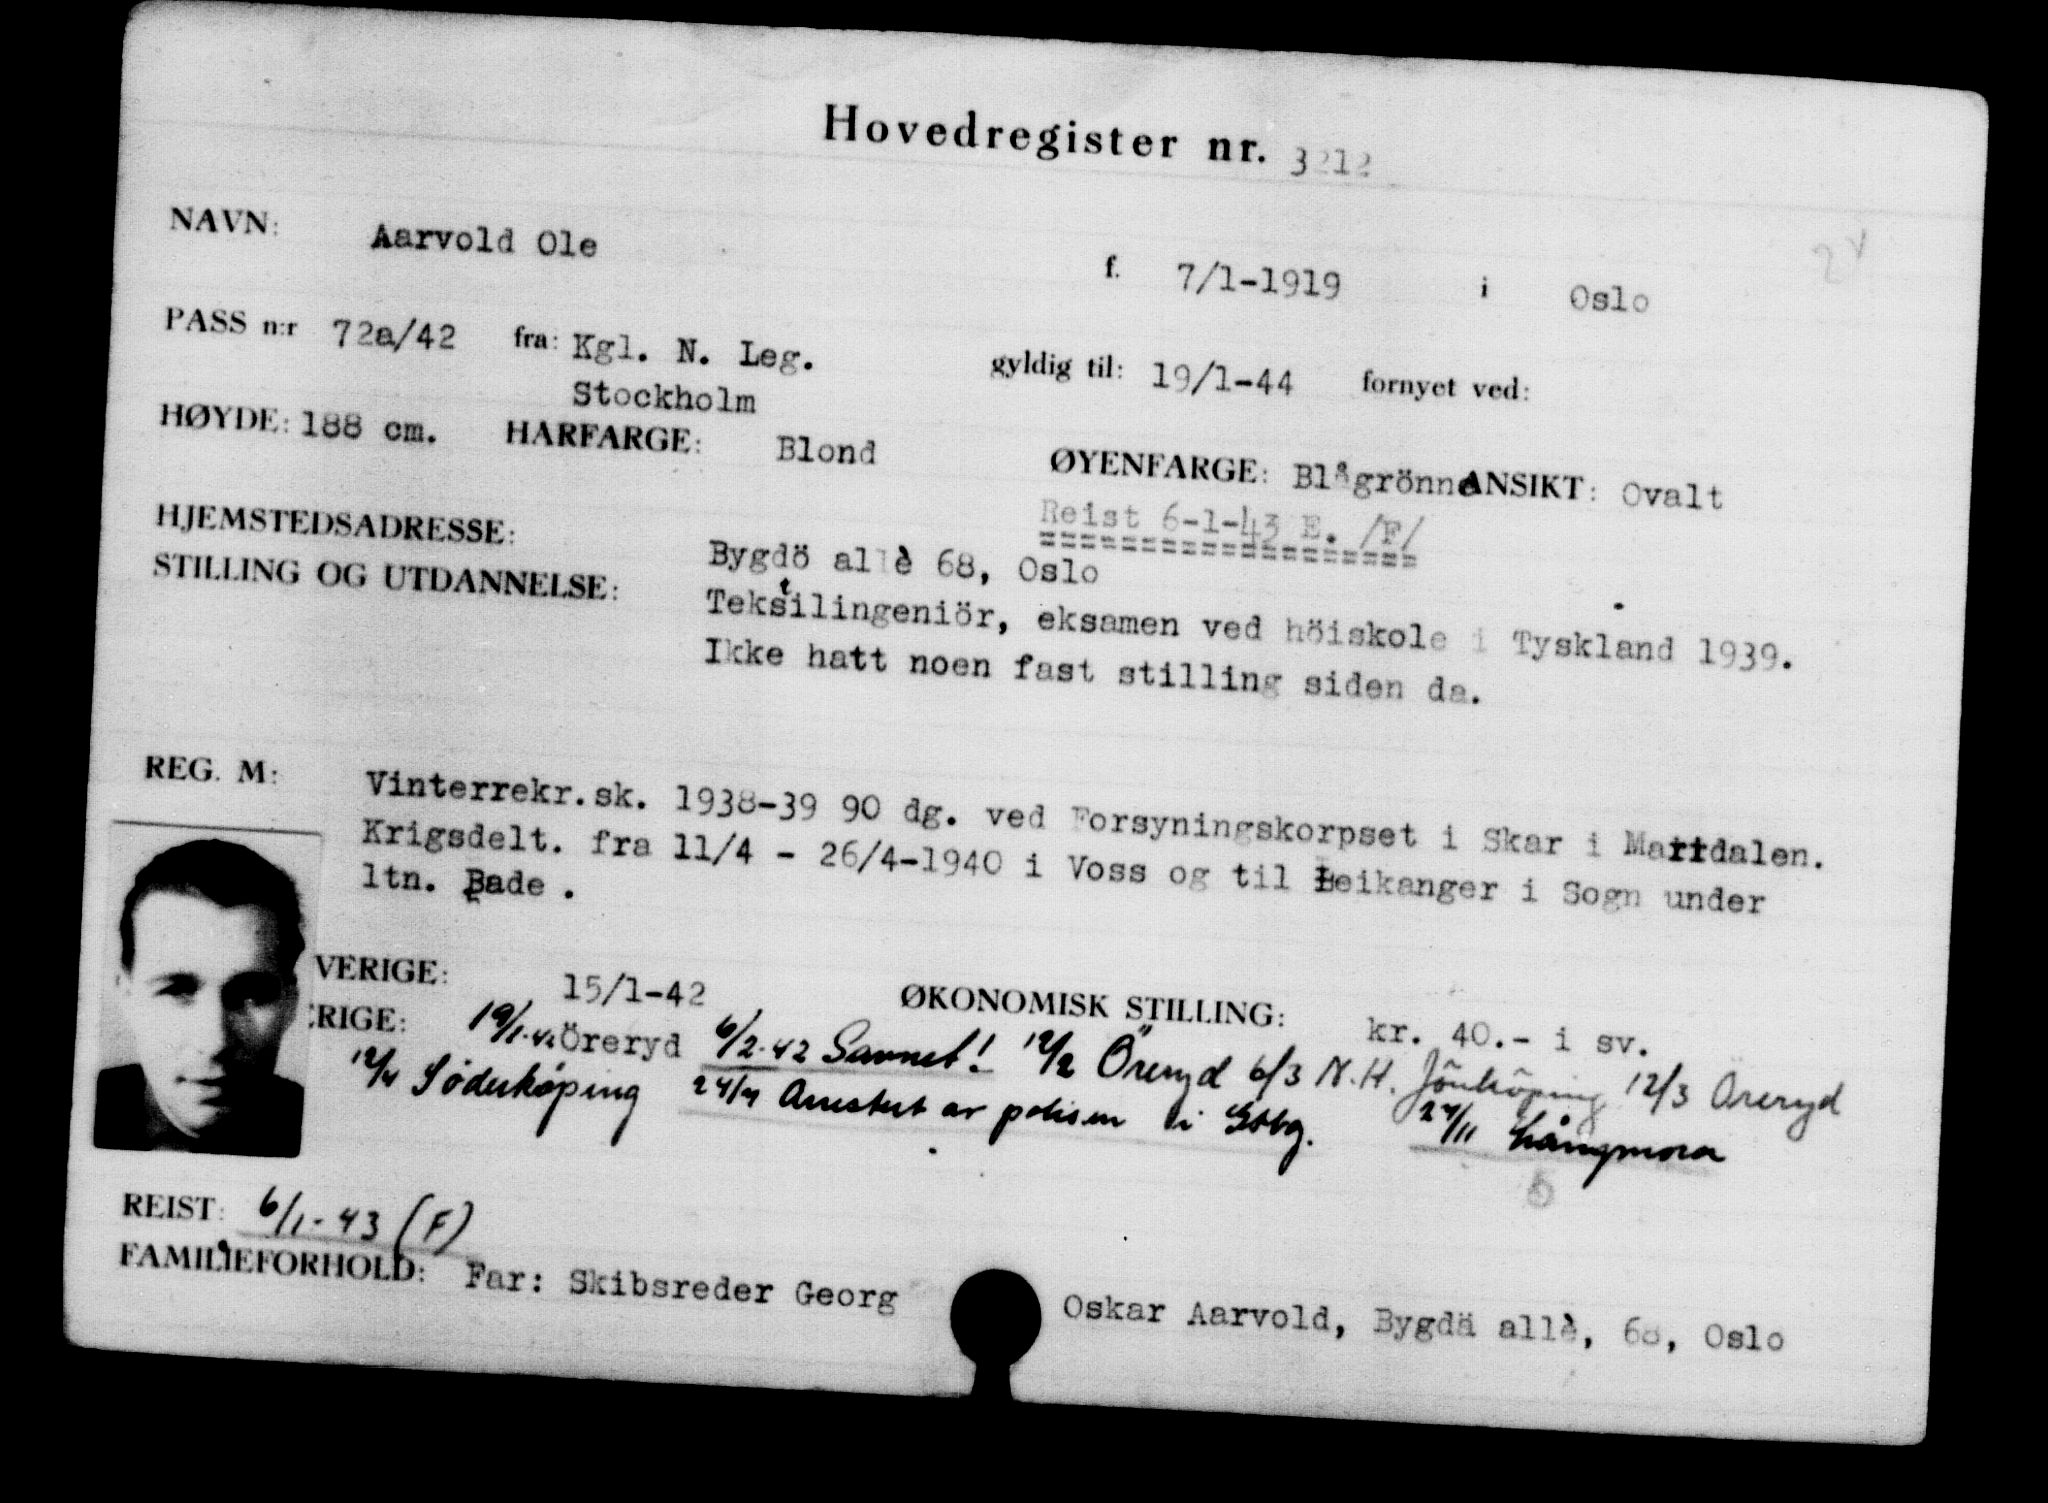 Hovedregister nr. 3212
NAVN: Aarvold Ole f. 7/1-1919 i Oslo
PASS n:r 72a/42 fra: Kgl. N. Leg. gyldig til: 19/1-44 fornyet ved:
Stockholm
HØYDE: 188 cm. HARFARGE: Blond ØYENFARGE: Blågrönne ANSIKT: Ovalt
Reist 6-1-43 E. /F/
HJEMSTEDSADRESSE: Bygdö allè 68, Oslo
STILLING OG UTDANNELSE: Tekstilingeniör, eksamen ved höiskole i Tyskland 1939.
Ikke hatt noen fast stilling siden da.
REG. M: Vinterrekr.sk. 1938-39 90 dg. ved Forsyningskorpset i Skar i Mardalen.
Krigsdelt. fra 11/4 - 26/4-1940 i Voss og til Leikanger i Sogn under
ltn. Bade .
VERIGE: 15/1-42 ØKONOMISK STILLING: kr. 40.- i sv.
ERIGE: 19/1-42 Öreryd 6/2-42 Savnet! 12/2 Öreryd 6/3 N.H. Jönköping 12/3 Öreryd
12/4 Söderköping 24/4 Arrestert av polisen i Gtbg. 24/11 Långmora
REIST: 6/1-43 (F)
FAMILIEFORHOLD: Far: Skibsreder Georg Oskar Aarvold, Bygdä allè, 68, Oslo